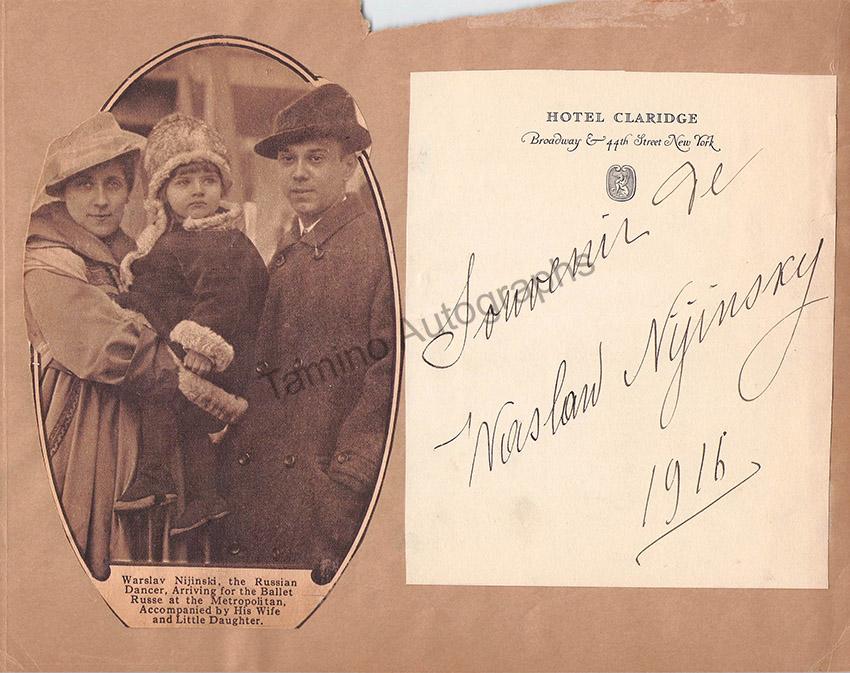 HOTEL CLARIDGE
Broadway & 44th Street New York
Souvenir de
Waslaw Nijinsky
1916
Warslav Nijinski, the Russian
Dancer, Arriving for the Ballet
Russe at the Metropolitan,
Accompanied by His Wife
and Little Daughter.
Tamino Autographs